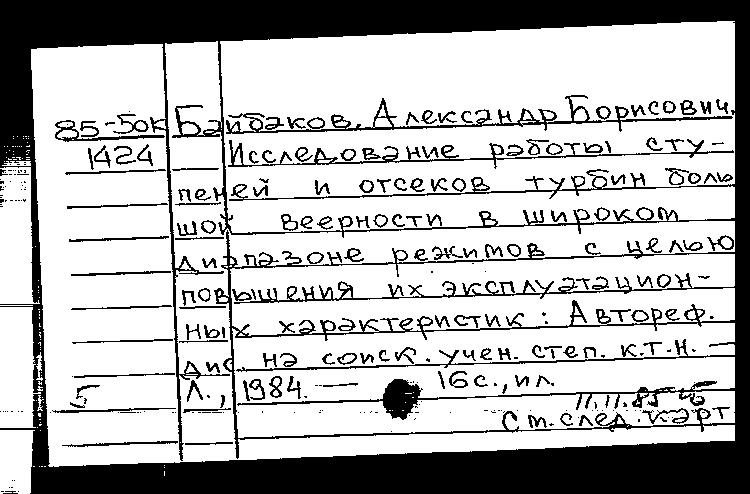 85-50к Байбаков, Александр Борисович.
1424 Исследование работы сту-
пеней и отсеков турбин боль
шой веерности в широком
диапазоне режимов с целью
повышения их эксплуатацион-
ных характеристик: Автореф.
дис. на соиск. учен. степ. к.т.н. —
5 Л., 1984. — 16 с., ил.
11.11.85
См. след. карт